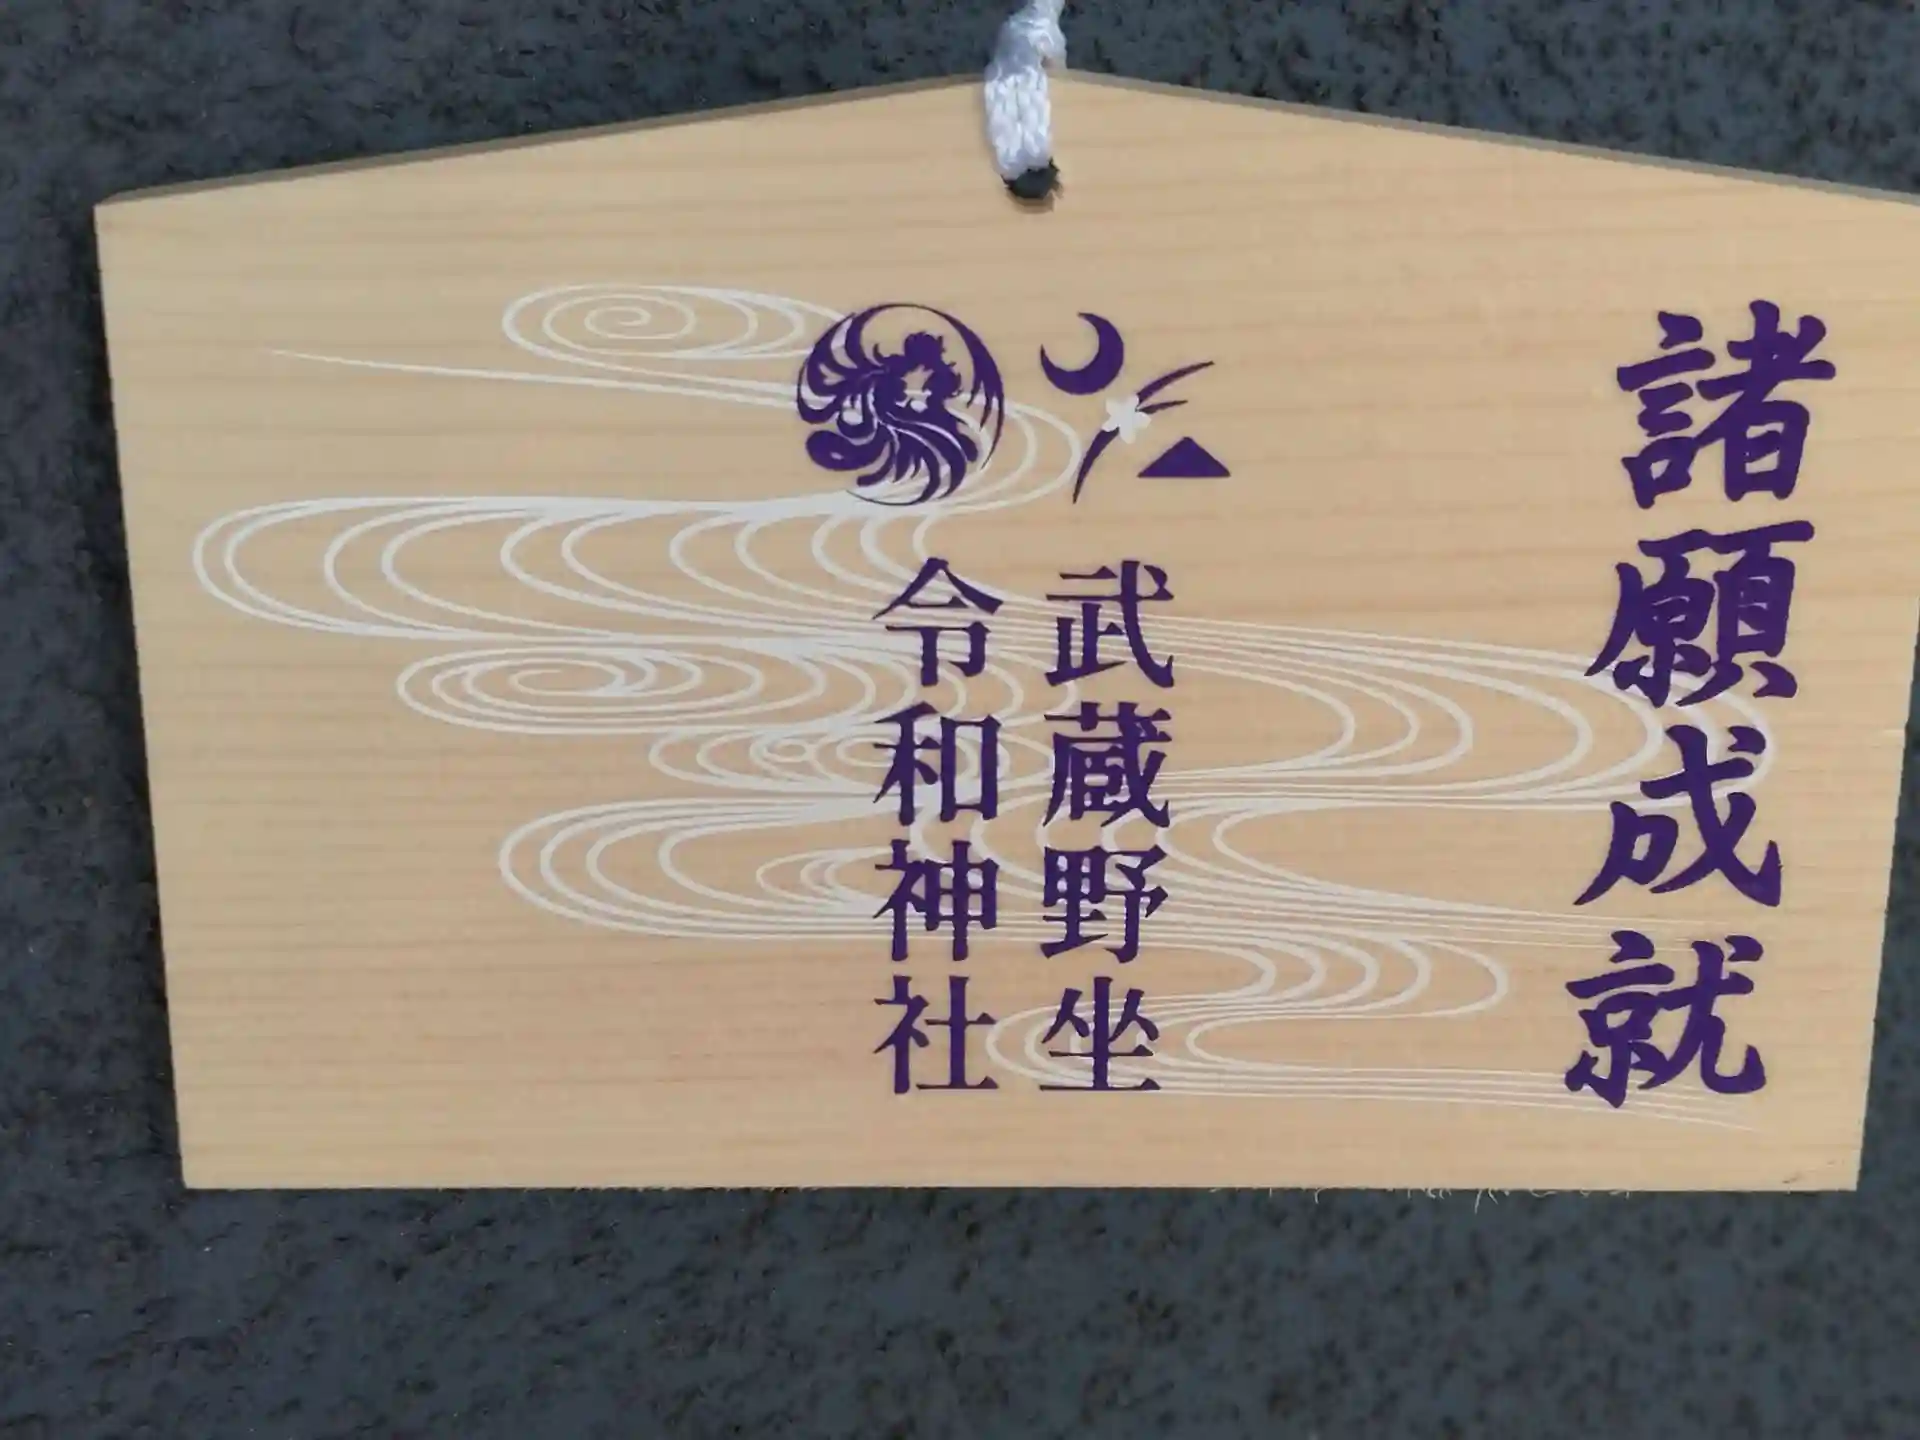 諸願成就
武蔵野坐
令和神社